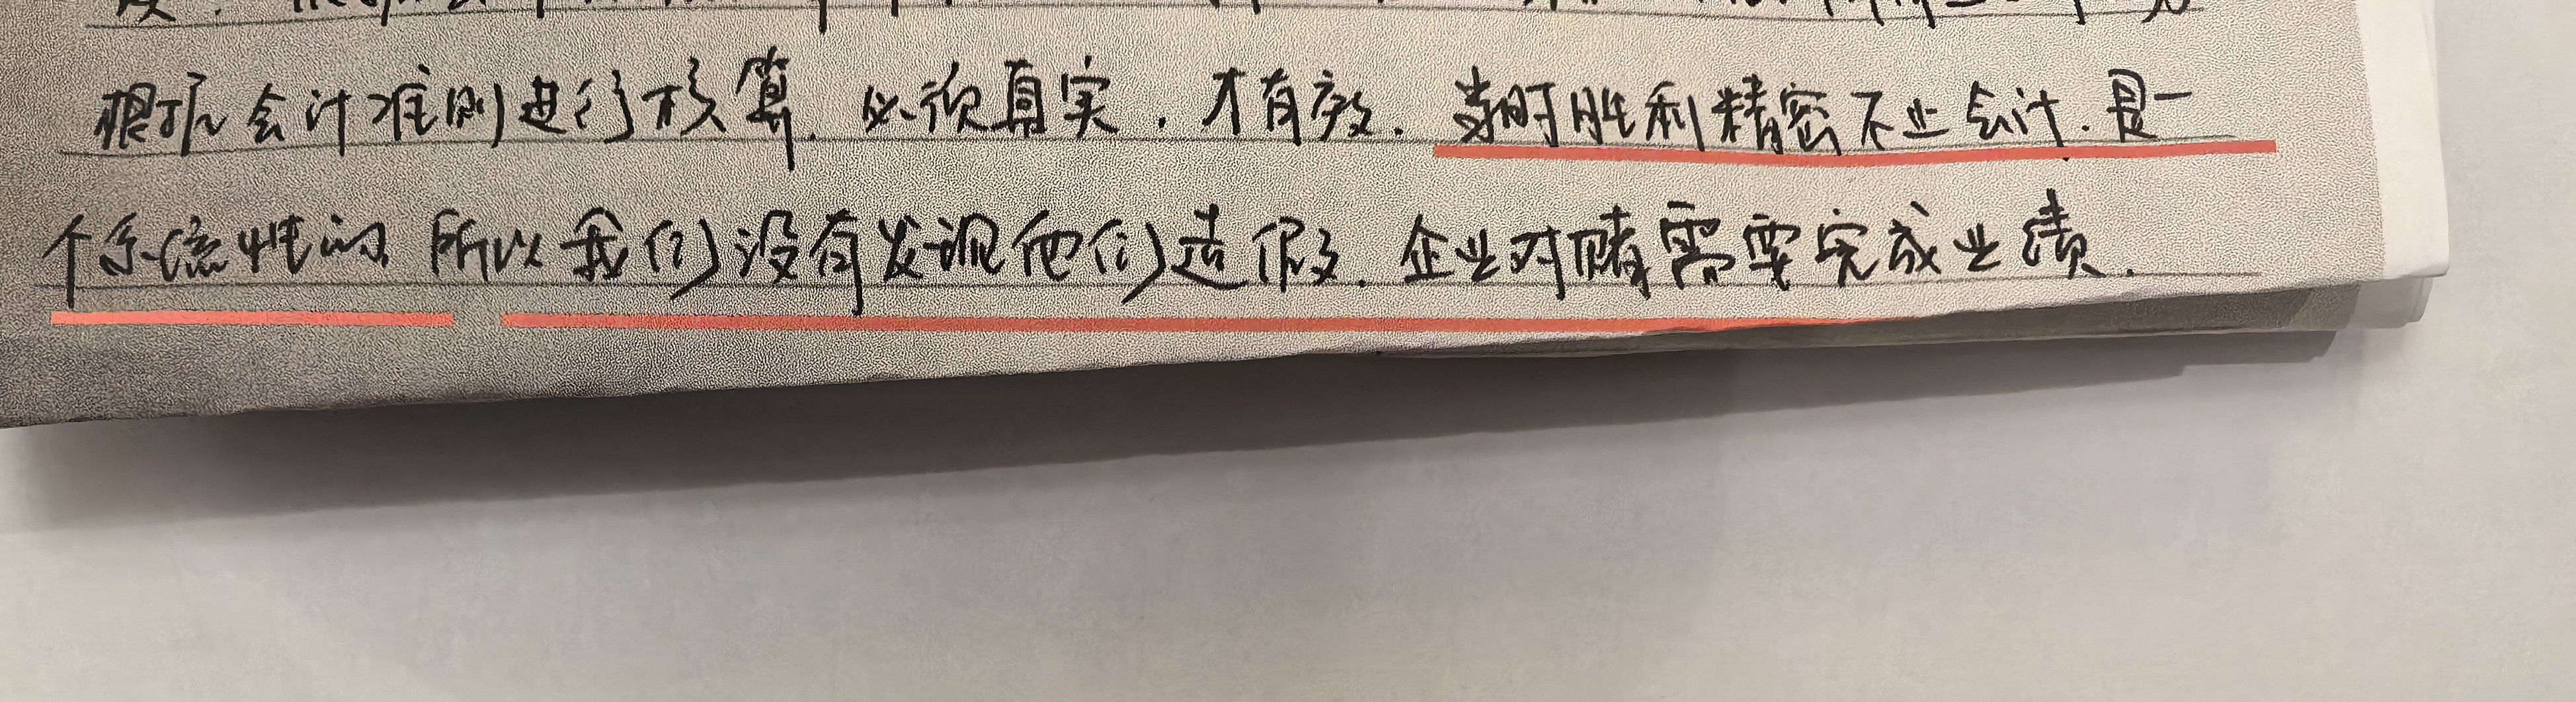 根据会计准则进行核算，必须真实，才有效，当时胜利精密不止会计，是一
个系统性的，所以我们没有发现他们造假，企业对赌需要完成业绩，